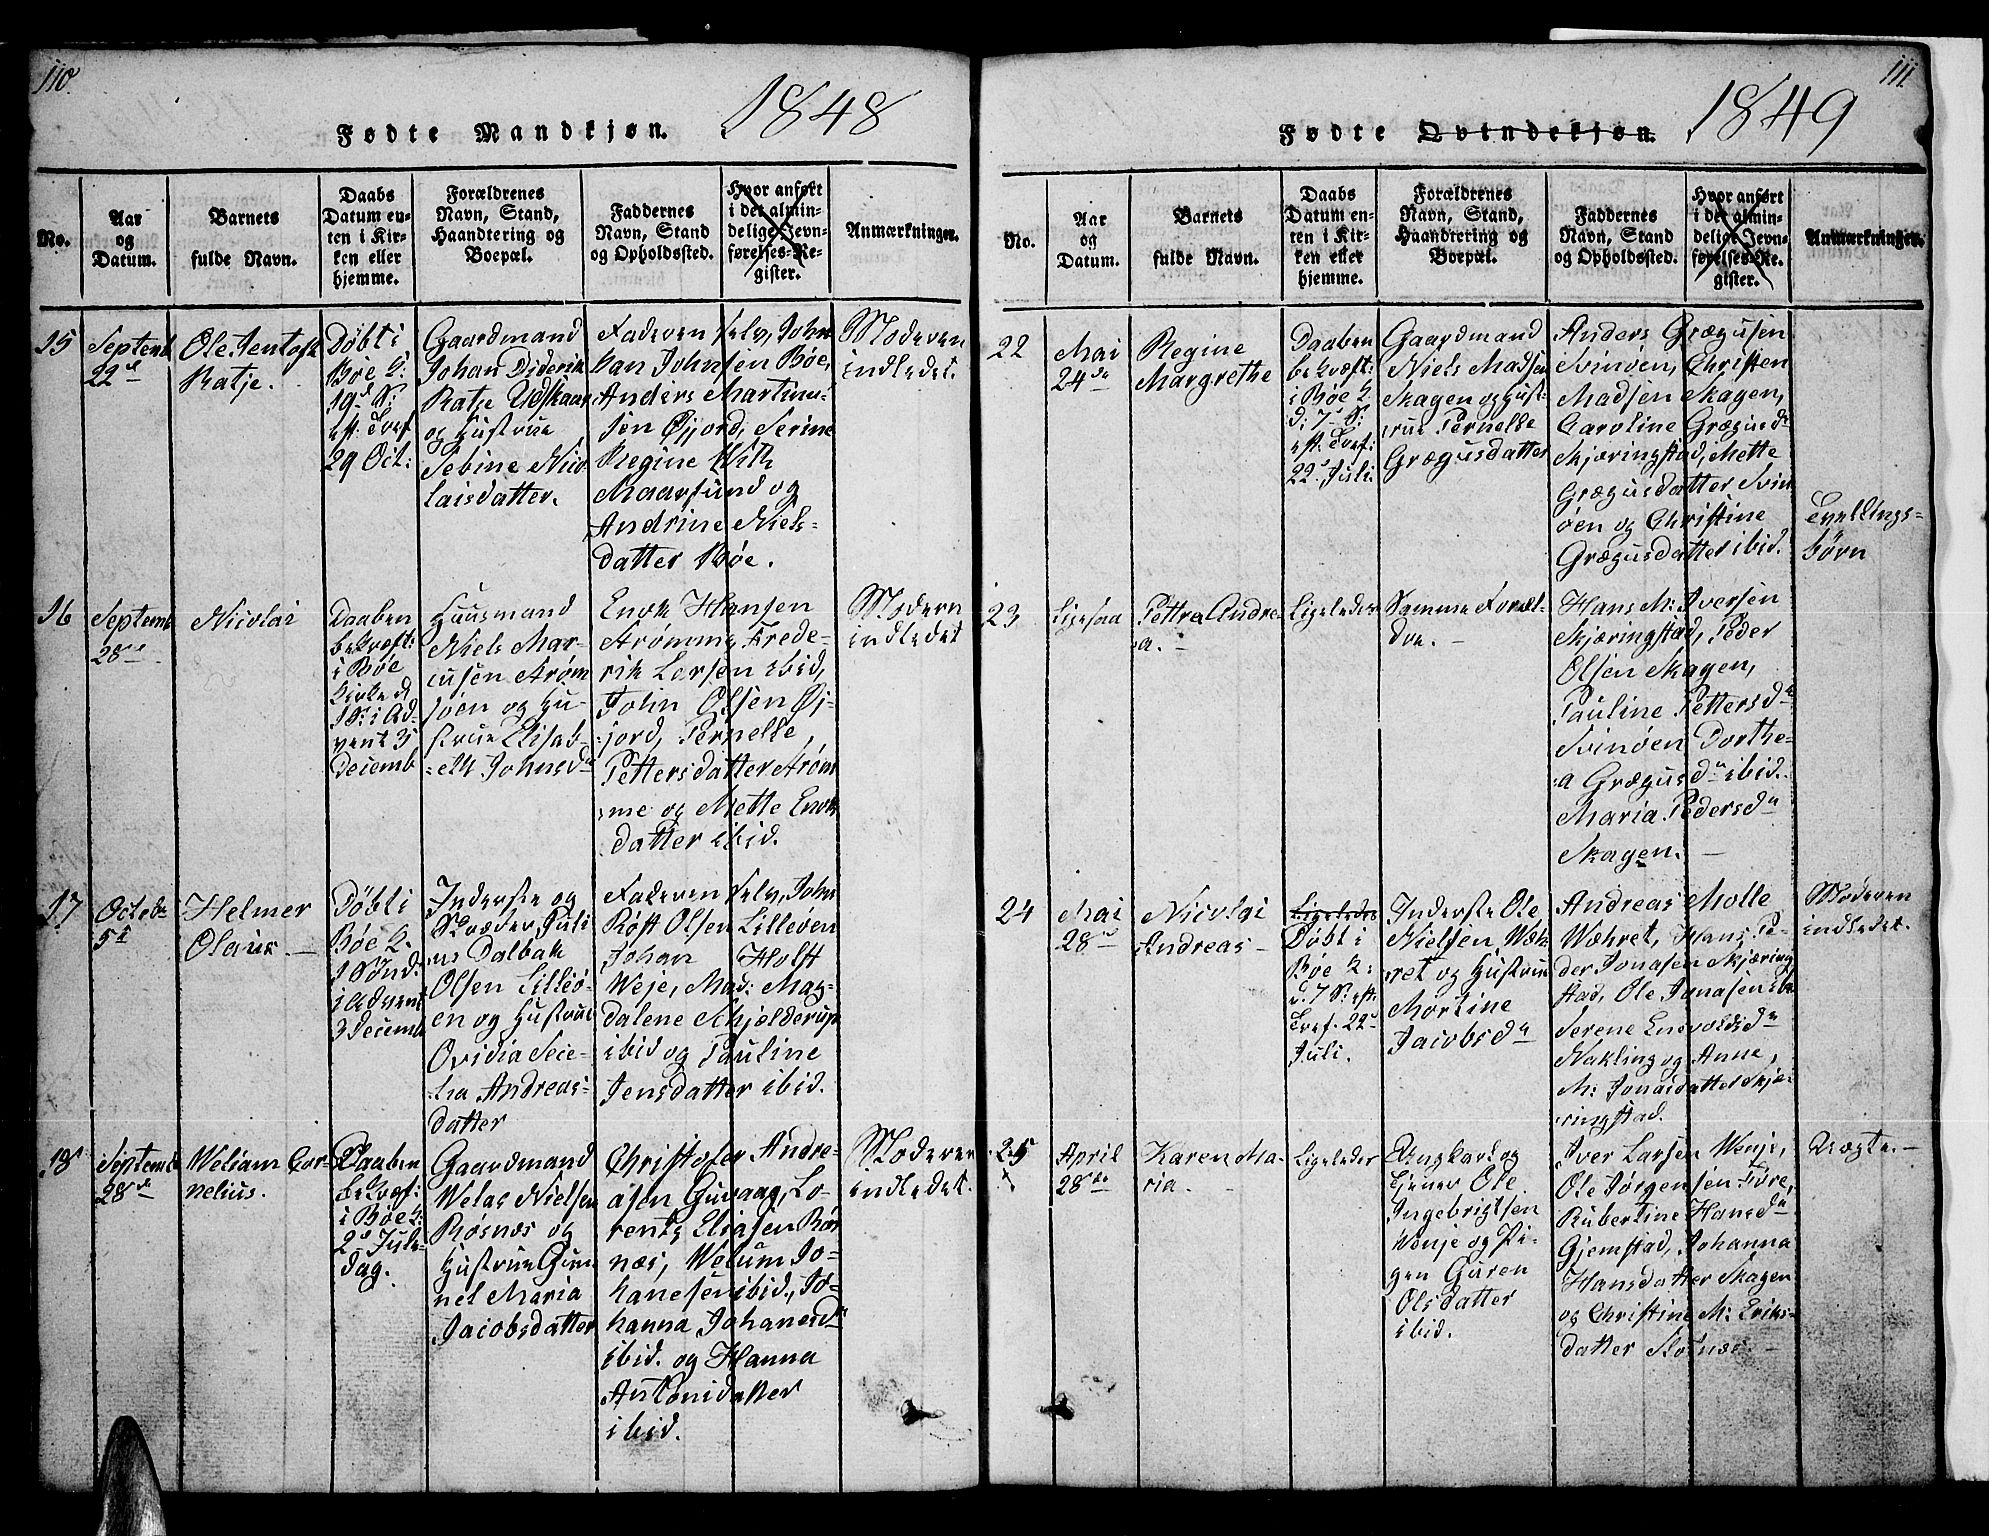 110.
1848
Fødte Mandkjøn.
No.
Aar
og
Datum.
Barnets
fulde Navn.
Daabs
Datum en-
ten i Kir-
ken eller
hjemme.
Forældrenes
Navn, Stand,
Haandtering og
Boepæl.
Faddernes
Navn, Stand
og Opholdssted.
Hvor anført
i det almin-
delige Jevn-
førelses-Re-
gister.
Anmærkninger.
15
Septemb
22de
Ole Jentoft
Ratje.
Døbt i
Bøe K:
19d S:
eft. Tref
29 Oct:
Gaardmand
Johan Diderik
Ratje Udskaar
og Hustrue
Sebine Nico
laisdatter.
Faderen selv, John
Johnsen Bøe,
Anders Martinu-
sen Øjord, Serine
Regine With
Maarsund og
Andrine Niels-
datter Bøe.
Moderen
indledet.
16
Septemb
28de
Nicolai
Daaben
bekræft:
i Bøe
Kirke d
1 S: i Ad-
vent 3
Decemb
Huusmand
Niels Mar-
cusen Arøm
søen og Hu-
strue Elisab-
eth Johnsdr
Enok Hansen
Arømme, Frede-
rik Larsen ibid,
John Olsen Øj-
jord, Pernelle
Pettersdatter Arøm
me og Mette Enok
datter ibid.
Modern
indledet
17
Octobr
5te
Helmer
Olaus. —
Døbt i
Bøe K.
1 Sønd.
i Advent
3 Decemb
Inderste og
Skræder Juli
us Dalbak
Olsen Lilleø-
en og Hustrue
Ovidia Sere-
na Andreas-
datter
Faderen selv, John
Røst Olsen Lilleøen
Johan Holst
Weje, Mad: Mag-
dalene Schjelderup
ibid og Pauline
Jensdatter ibid.
18
Septemb
28de
Weliam Cor-
nelius.
Daaben
bekræf:
i Bøe K:
2d Jule-
dag.
Gaardmand
Welas Nielsen
Røsnæs og
Hustrue Gun
nel Maria
Jacobsdatter
Christofer Andre-
asen Guvaag, Lo-
rents Eliasen Røs
næs, Welum Jo-
hanesen ibid., Jo-
hanna Johanesdr
ibid. og Hanna
Antonidatter
ibid.
Moderen
indledet.
111.
1849
Fødte Qvindekjøn.
No.
Aar
og
Datum.
Barnets
fulde Navn.
Daabs
Datum en-
ten i Kir-
ken eller
hjemme.
Forældrenes
Navn, Stand,
Haandtering og
Boepæl.
Faddernes
Navn, Stand
og Opholdssted.
Hvor anført
i det almin-
delige Jevn-
førelses-Re-
gister.
Anmærkninger.
22
Mai
24de
Regine
Margrethe
Daaben
bekræft:
i Bøe K
d: 7d S:
eft. Tref:
22d Juli.
Gaardmand
Niels Madsen
Skagen og Hust-
rue Pernelle
Grægusdatter
Anders Grægusen
Svinøen, Christen
Madsen Skagen,
Caroline Grægusdr
Skjæringstad, Mette
Grægusdatter Svin
øen og Christine
Grægusdatter ibid.
Tvellings-
børn
23
Ligesaa
Pettra Andre-
a. —
Ligeledes
Samme Foræl-
dre. —
Hans M: Iversen
Skjæringstad, Peder
Olsen Skagen,
Pauline Pettersdr
Svinøen Dorthe-
a Grægusdr ibid.
Maria Pedersdr
Skagen. —
24
Mai
28de
Nicolai
Andreas —
Ligeledes
Døbt i
Bøe K:
d. 7 S: eft.
Tref. 22d
Juli.
Inderste Ole
Nielsen Wæh-
ret og Hustrue
Martine
Jacobsdr
Andreas Molle
Wæhret, Hans Pe-
der Jonasen Skjæring
stad, Ole Jonasen ibd
Serene Enevoldsdr
Nykling og Anne
M: Jonasdatter Skjæ-
ringstad.
Moderen
indledet.
25
April
28de
Karen Ma-
ria. —
Ligeledes
Ungkarl og
Tjener Ole
Ingebrigtsen
Wenje og Pi-
gen Guren
Olsdatter
ibid.
Iver Larsen Wenje,
Ole Jørgensen Føre,
Rubertine Hansdr
Gjemstad, Johanna
Hansdatter Skagen
og Christine M: Eriks-
datter Slotnæs. —
Uægte. —